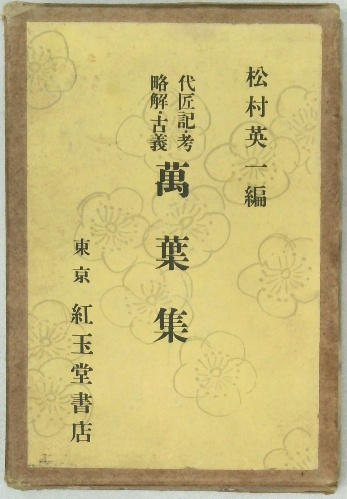 松村英一編
代匠記・考
略解・古義
萬葉集
東京 紅玉堂書店